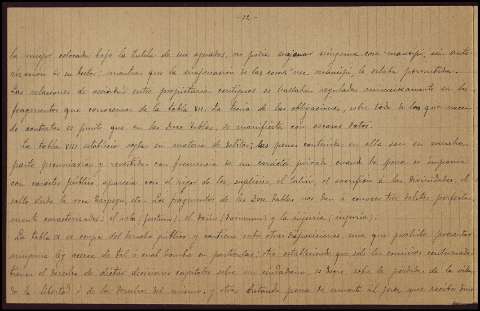 -12-
la mujer colocada bajo la tutela de sus agnados, no podía enajenar ninguna cosa mancipi, sin auto-
rización de su tutor; mientras que la enajenación de las cosas nec mancipi, le estaba permitida.
Las relaciones de vecindad entre propietarios contiguos se hallaban reguladas minuciosamente en los
fragmentos que conocemos de la tabla VII. La teoría de las obligaciones, sobre todo de las que nacen
de contratos es punto que en las Doce Tablas, se manifiesta con escasos datos.
La tabla VIII establecía reglas en materia de delitos; las penas contenidas en ella son en mucha
parte pecuniarias y revestidas con frecuencia de un carácter privado cuando la pena se imponía
con carácter público, aparecía con el rigor de los suplicios, el talión, el sacrificio a las divinidades, el
salto desde la roca Tarpeya, etc. Los fragmentos de las Doce Tablas nos dan a conocer tres delitos perfecta-
mente caracterizados: el robo (furtum), el daño (damnum) y la injuria (injuria).
La tabla IX se ocupa del derecho público y contiene entre otras disposiciones, una que prohibe presentar
ninguna ley acerca de tal o cual hombre en particular; otra estableciendo que solo los comicios centuriados
tienen el derecho de dictar decisiones capitales sobre un ciudadano, es decir, sobre la pérdida de la vida
de la libertad o de los derechos del mismo, y otra dictando pena de muerte al juez que reciba dine